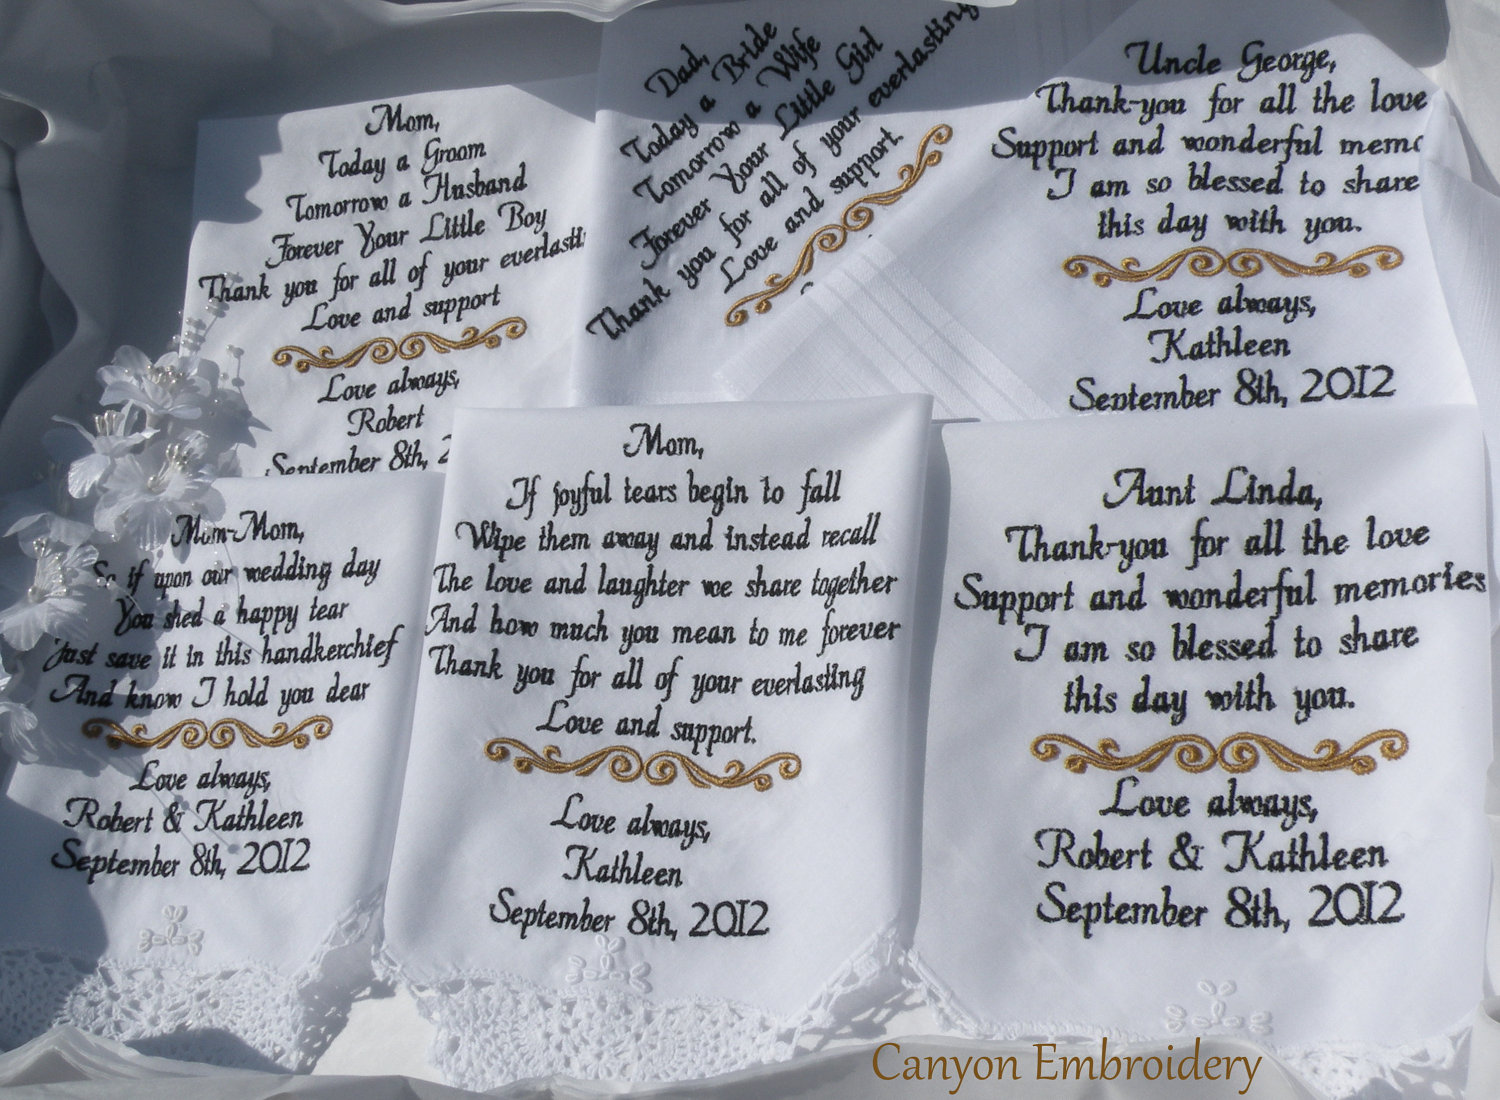 Mom,
Today a Groom
Tomorrow a Husband
Forever Your Little Boy
Thank you for all of your everlasti
Love and support
Love always,
Robert
September 8th, 2
Dad,
Today a Bride
Tomorrow a Wife
Forever Your Little Girl
Thank you for all of your everlasting
Love and support.
Uncle George,
Thank-you for all the love
Support and wonderful memo
I am so blessed to share
this day with you.
Love always,
Kathleen
September 8th, 2012
Mom-Mom,
So if upon our wedding day
You shed a happy tear
Just save it in this handkerchief
And know I hold you dear
Love always,
Robert & Kathleen
September 8th, 2012
Mom,
If joyful tears begin to fall
Wipe them away and instead recall
The love and laughter we share together
And how much you mean to me forever
Thank you for all of your everlasting
Love and support.
Love always,
Kathleen
September 8th, 2012
Aunt Linda,
Thank-you for all the love
Support and wonderful memories
I am so blessed to share
this day with you.
Love always,
Robert & Kathleen
September 8th, 2012
Canyon Embroidery